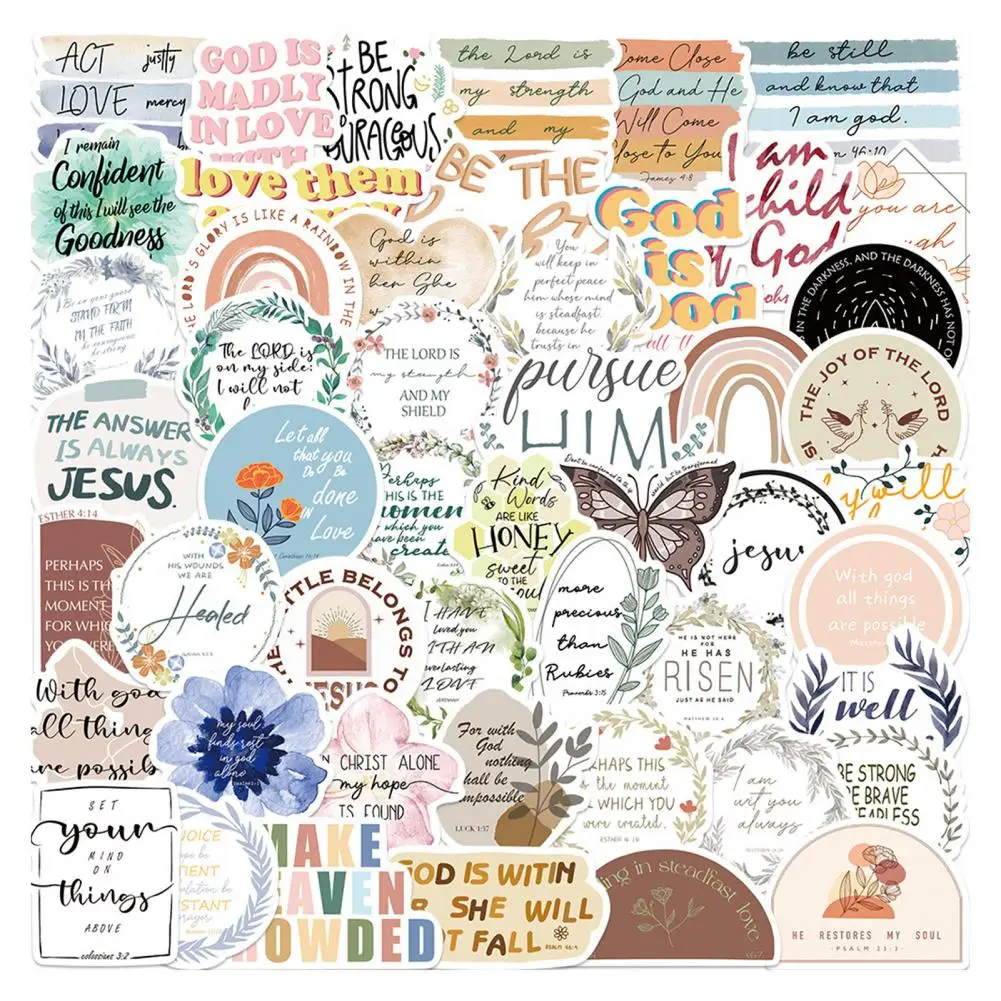 ACT justly
LOVE mercy
GOD IS
MADLY
IN LOVE
WITH
BE
STRONG
COURAGEOUS
the Lord is
my strength
and my
Come Close
God and He
Will Come
Close to You
James 4:8
be still
and know that
I am god.
46:10
I remain
Confident
of this I will see the
Goodness
love them
BE THE
God
is
Good
I am
child
of God
you are
enough
THE LORD'S GLORY IS LIKE A RAINBOW IN THE
God is
within
her She
You
will keep in
perfect peace
him whose mind
is steadfast,
because he
trusts in
IN THE DARKNESS, AND THE DARKNESS HAS NOT
Be on your guard
STAND FIRM
IN THE FAITH
be courageous
be strong
The LORD is
on my side;
I will not
THE LORD IS
my strength
AND MY
SHIELD
pursue
HIM
THE JOY OF THE LORD IS
THE ANSWER
IS ALWAYS
JESUS.
Let all
that you
Do Be
done
IN
Love
1 Corinthians 16:14
Perhaps
THIS IS THE
moment
for which you
have been
created
Kind
Words
ARE LIKE
HONEY
sweet
TO THE
soul
Don't be conformed to
but be transformed
jesus
will
ESTHER 4:14
PERHAPS
THIS IS THE
MOMENT
FOR WHICH
YOU WERE
WITH
HIS WOUNDS
WE ARE
Healed
THE LITTLE BELONGS TO
JESUS
I HAVE
loved you
WITH AN
everlasting
LOVE
JEREMIAH
more
precious
than
Rubies
Proverbs 3:15
HE IS NOT HERE
FOR
HE HAS
RISEN
JUST AS HE SAID
MATTHEW 28:6
With god
all things
are possible
IT IS
well
With god
all things
are possible
my soul
finds rest
in god
alone
IN CHRIST ALONE
my hope
IS FOUND
For with
God
nothing
shall be
impossible
LUKE 1:37
PERHAPS THIS
is the moment
FOR WHICH YOU
were created.
ESTHER 4:14
I am
with you
always
BE STRONG
BE BRAVE
BE FEARLESS
SET
your
MIND
ON
things
ABOVE
colossians 3:2
REJOICE
hope be
PATIENT
tribulation be
CONSTANT
prayer
MAKE
HEAVEN
CROWDED
GOD IS WITIN
HER SHE WILL
NOT FALL
PSALM 46:5
in steadfast love
HE RESTORES MY SOUL
-PSALM 23:3-